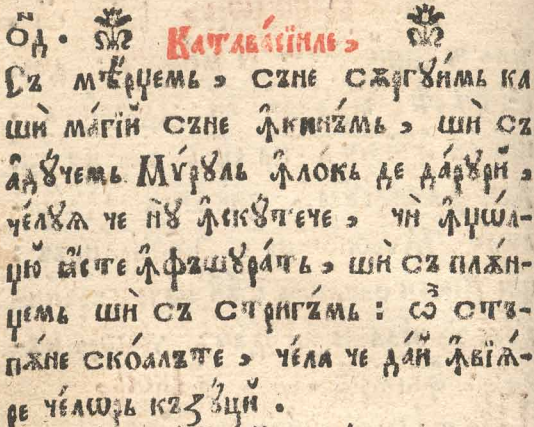 ѻ҃д . Катавасїиле ,
Съ мѣ́рџемь , съне сѫргꙋи́мь ка
шѝ ма́гїй съне ꙟ҆кинъ́мь , шѝ съ
а҆дꙋ́чемь Мѵ́рꙋль ꙟ҆ло́кь де да́рꙋрй ,
че́лꙋѧ че нꙋ ꙟ҆скꙋ́тече , чѝ ꙟ҆џѡ́л-
цю̀ ꙗ҆́сте ꙟ҆фъшꙋра́ть , шѝ съ плѫ́н-
џемь шѝ съ стригъ́мь : ѽ стъ-
пѫ́не скоа́лъте , че́ла че да́й ꙟ҆вїѧ́-
ре че́лѡрь къзꙋ́цй .